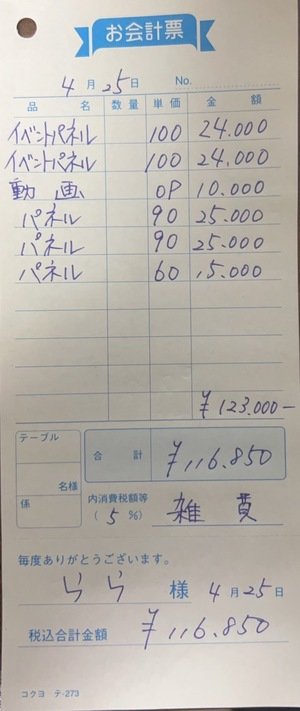 お会計票
4月25日 No.
品名 数量 単価 金額
イベントパネル 100 24.000
イベントパネル 100 24,000
動画 OP 10.000
パネル 90 25.000
パネル 90 25.000
パネル 60 15.000
¥123.000-
テーブル
合計 ¥116.850
名様
係
内消費税額等
(5%) 雑費
毎度ありがとうございます。
らら 様 4月25日
税込合計金額 ¥116.850
コクヨ テ-273